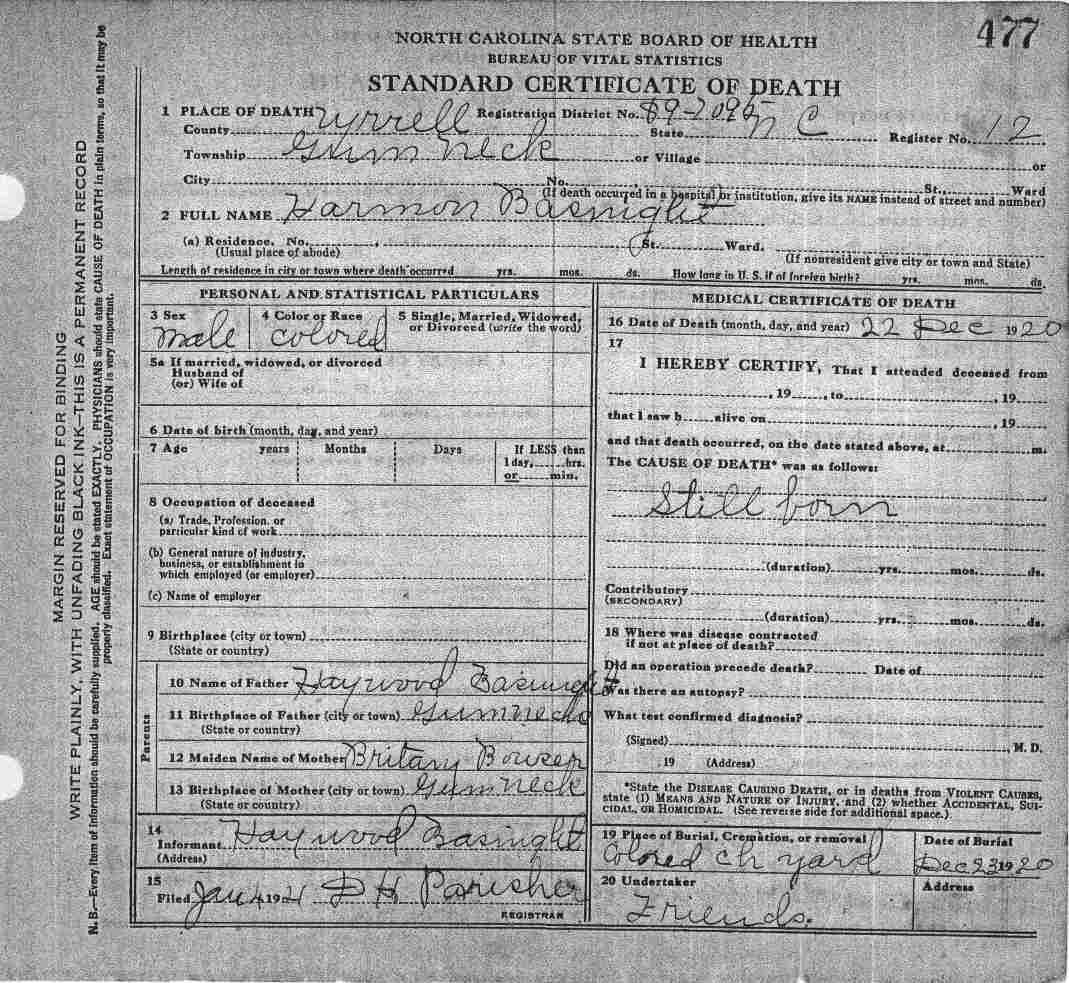 477
NORTH CAROLINA STATE BOARD OF HEALTH
BUREAU OF VITAL STATISTICS
STANDARD CERTIFICATE OF DEATH
1 PLACE OF DEATH Registration District No. 89-7095
County Tyrrell State N C Register No. 12
Township Gum Neck or Village or
City No. St., Ward
(If death occurred in a hospital or institution, give its NAME instead of street and number)
2 FULL NAME Harmon Basnight
(a) Residence. No. , St. Ward.
(Usual place of abode) (If nonresident give city or town and State)
Length of residence in city or town where death occurred yrs. mos. ds. How long in U. S. if of foreign birth? yrs. mos. ds.
PERSONAL AND STATISTICAL PARTICULARS
3 Sex 4 Color or Race 5 Single, Married, Widowed,
or Divorced (write the word)
male colored
5a If married, widowed, or divorced
Husband of
(or) Wife of
6 Date of birth (month, day, and year)
7 Age years Months Days If LESS than
1 day, hrs.
or min.
8 Occupation of deceased
(a) Trade, Profession, or
particular kind of work
(b) General nature of industry,
business, or establishment in
which employed (or employer)
(c) Name of employer
9 Birthplace (city or town)
(State or country)
Parents
10 Name of Father Haywood Basinight
11 Birthplace of Father (city or town) Gum neck
(State or country)
12 Maiden Name of Mother Britany Bowser
13 Birthplace of Mother (city or town) Gum neck
(State or country)
14
Informant Haywood Basinght
(Address)
15
Filed Jan 4 1921 D H Parisher
REGISTRAR
MEDICAL CERTIFICATE OF DEATH
16 Date of Death (month, day, and year) 22 Dec 1920
17
I HEREBY CERTIFY, That I attended deceased from
, 19 , to , 19
that I saw h alive on , 19
and that death occurred, on the date stated above, at m.
The CAUSE OF DEATH* was as follows:
Still born
(duration) yrs. mos. ds.
Contributory
(SECONDARY)
(duration) yrs. mos. ds.
18 Where was disease contracted
if not at place of death?
Did an operation precede death? Date of
Was there an autopsy?
What test confirmed diagnosis?
(Signed) , M. D.
, 19 (Address)
*State the DISEASE CAUSING DEATH, or in deaths from VIOLENT CAUSES,
state (1) MEANS AND NATURE OF INJURY, and (2) whether ACCIDENTAL, SUI-
CIDAL, OR HOMICIDAL. (See reverse side for additional space.)
19 Place of Burial, Cremation, or removal Date of Burial
Colored ch yard Dec 23 1920
20 Undertaker Address
Friends.
MARGIN RESERVED FOR BINDING
WRITE PLAINLY, WITH UNFADING BLACK INK—THIS IS A PERMANENT RECORD
N. B.—Every item of information should be carefully supplied. AGE should be stated EXACTLY. PHYSICIANS should state CAUSE OF DEATH in plain terms, so that it may be
properly classified. Exact statement of OCCUPATION is very important.